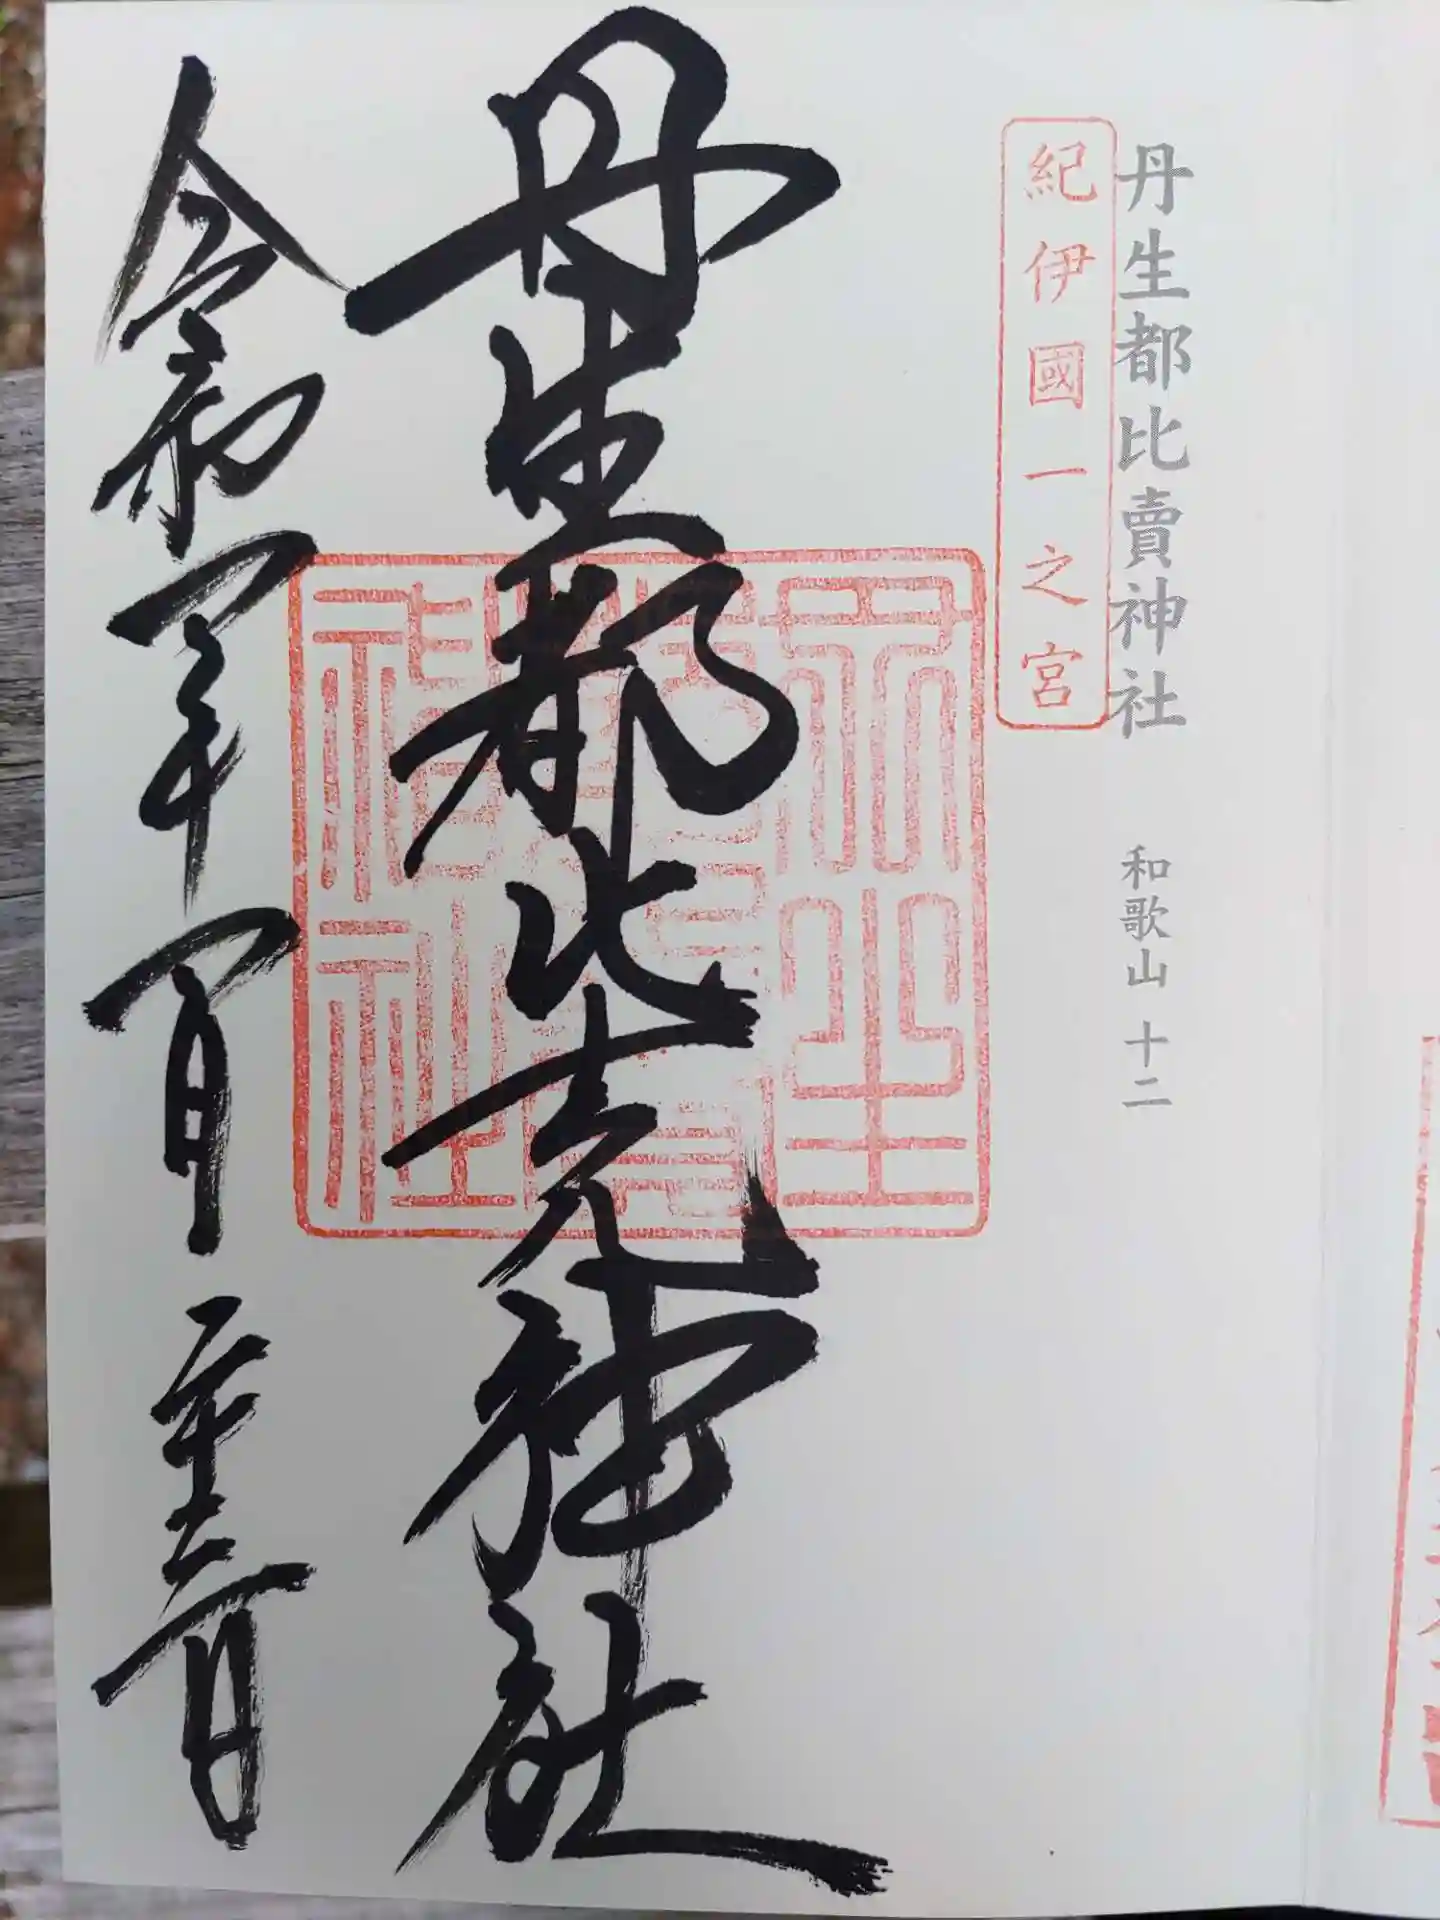 丹生都比賣神社 和歌山 十二
紀伊國一之宮
丹生都比売神社
丹生
都比賣
神社
令和 年 月 日